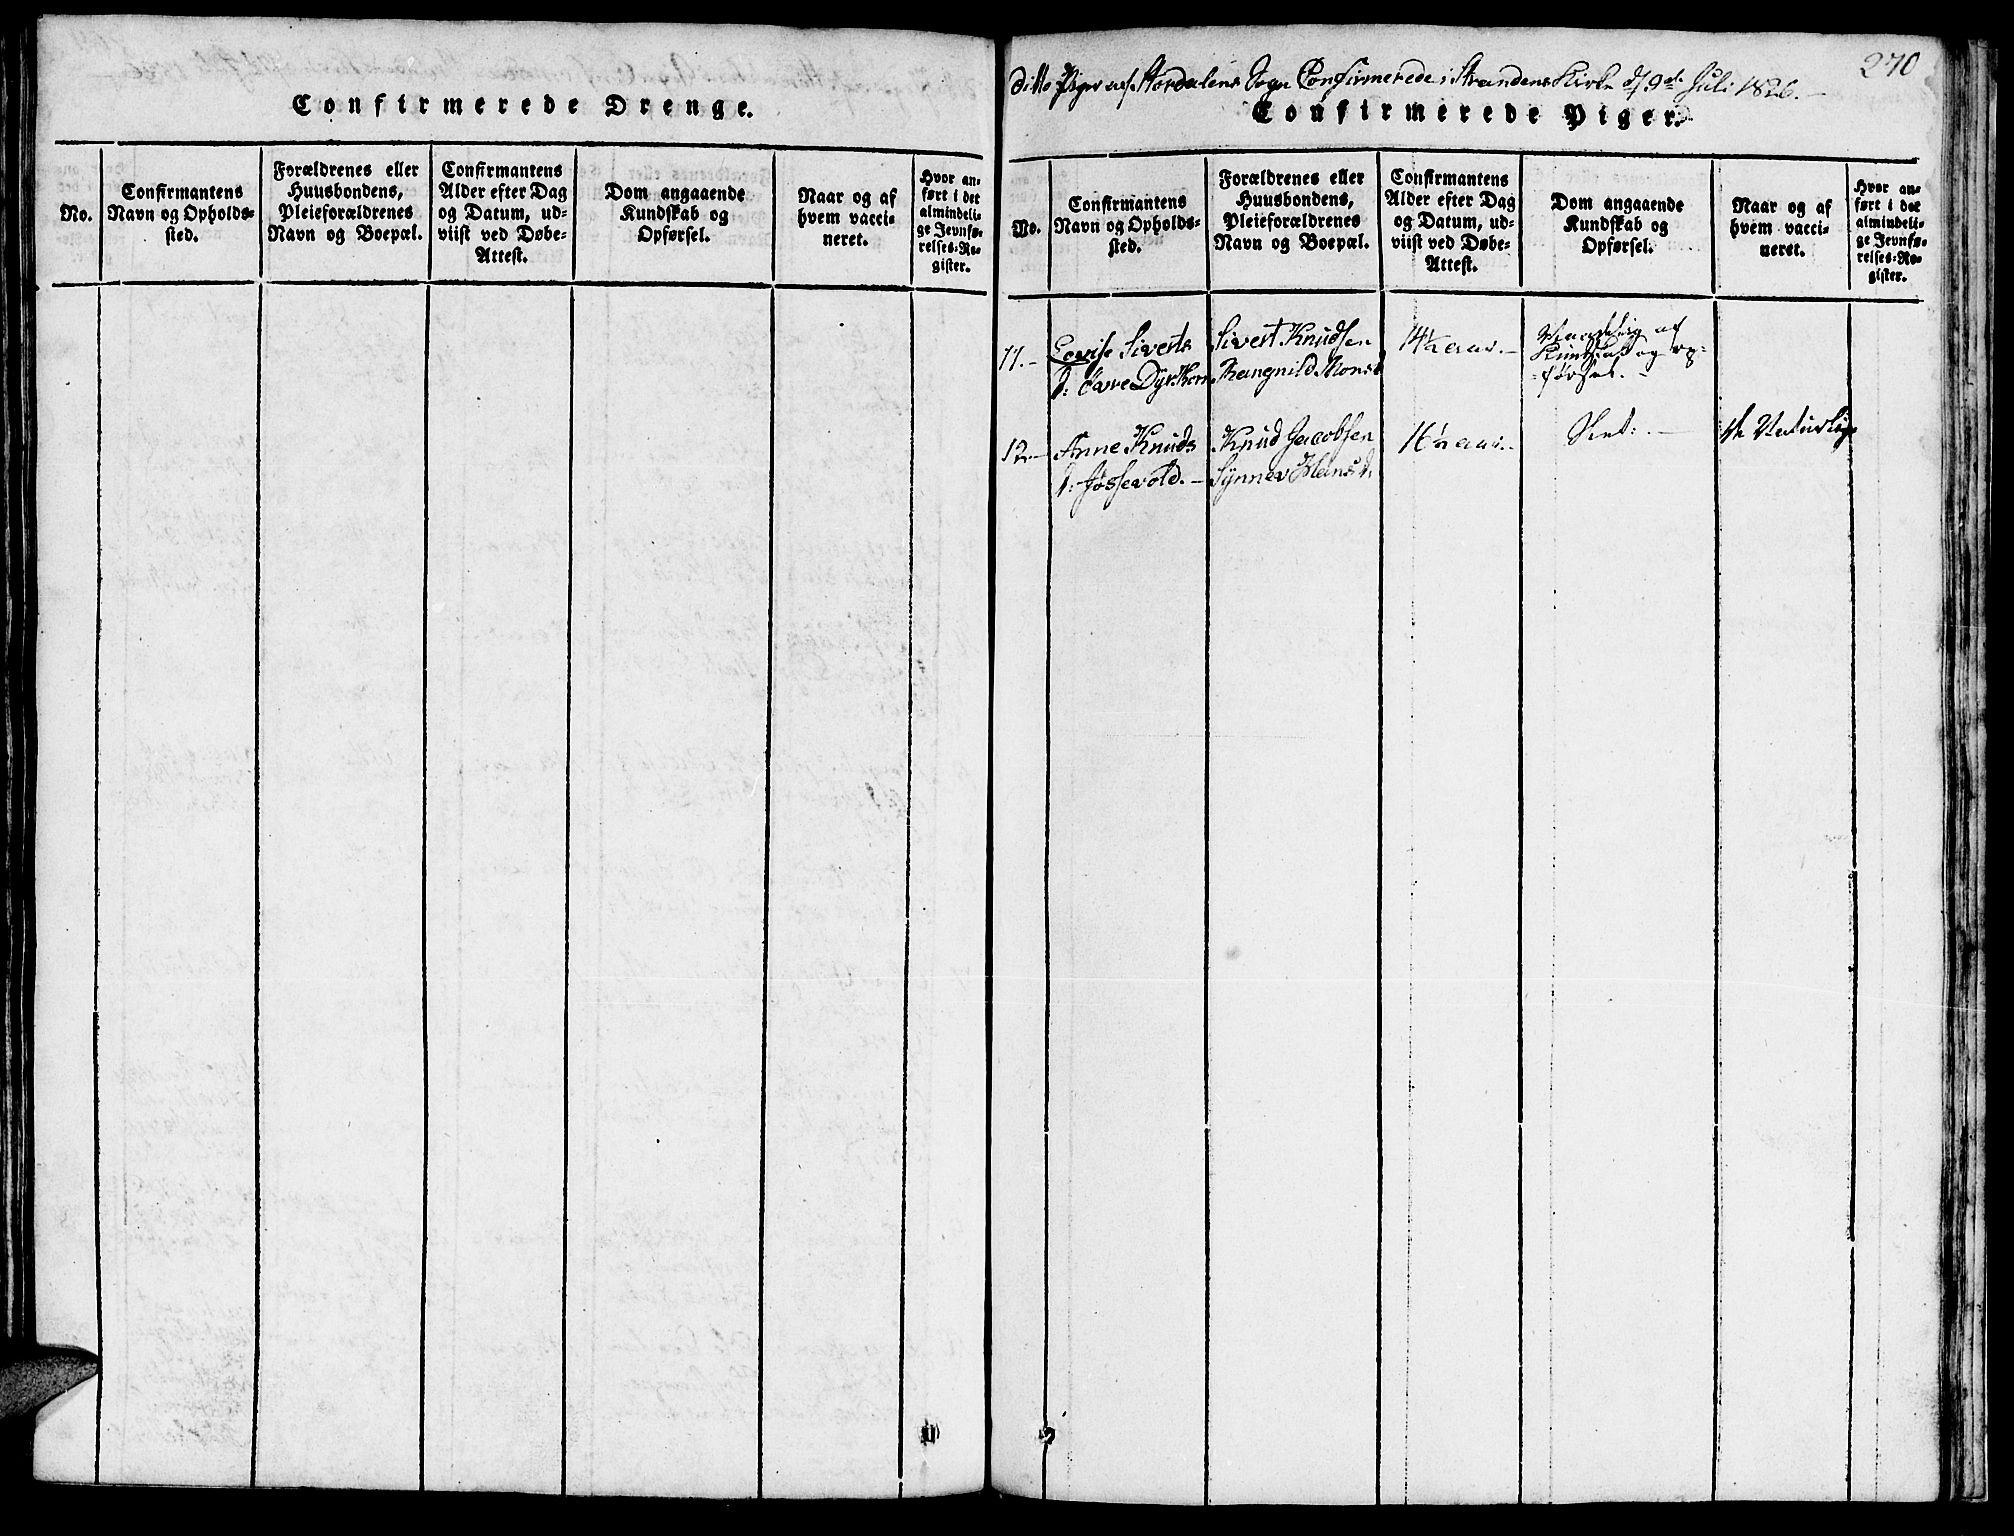 Confirmerede Drenge.
No.
Confirmantens
Navn og Opholds-
sted.
Forældrenes eller
Huusbondens,
Pleieforældrenes
Navn og Boepæl.
Confirmantens
Alder efter Dag
og Datum, ud-
viist ved Døbe-
Attest.
Dom angaaende
Kundskab og
Opførsel.
Naar og af
hvem vacci-
neret.
Hvor an-
ført i det
almindeli-
ge Jevnfø-
relses-Re-
gister.
270
ditto Piger af Stordalens Sogn Confirmerede i Strandens Kirke d. 9de Juli 1826.
Confirmerede Piger.
No.
Confirmantens
Navn og Opholds-
sted.
Forældrenes eller
Huusbondens,
Pleieforældrenes
Navn og Boepæl.
Confirmantens
Alder efter Dag
og Datum, ud-
viist ved Døbe-
Attest.
Dom angaaende
Kundskab og
Opførsel.
Naar og af
hvem vacci-
neret.
Hvor an-
ført i det
almindeli-
ge Jevnfø-
relses-Re-
gister.
11.- Siverts Sivert Knudsen 14½ aar.-
d: øvre Dyrkorn Rangnild Monsd
af
Kundskab og op-
-førsel.-
12.- Anne Knuds Knud Jacobsen 16½ aar.-
d: Jøssevold.- Synnev Hansd: